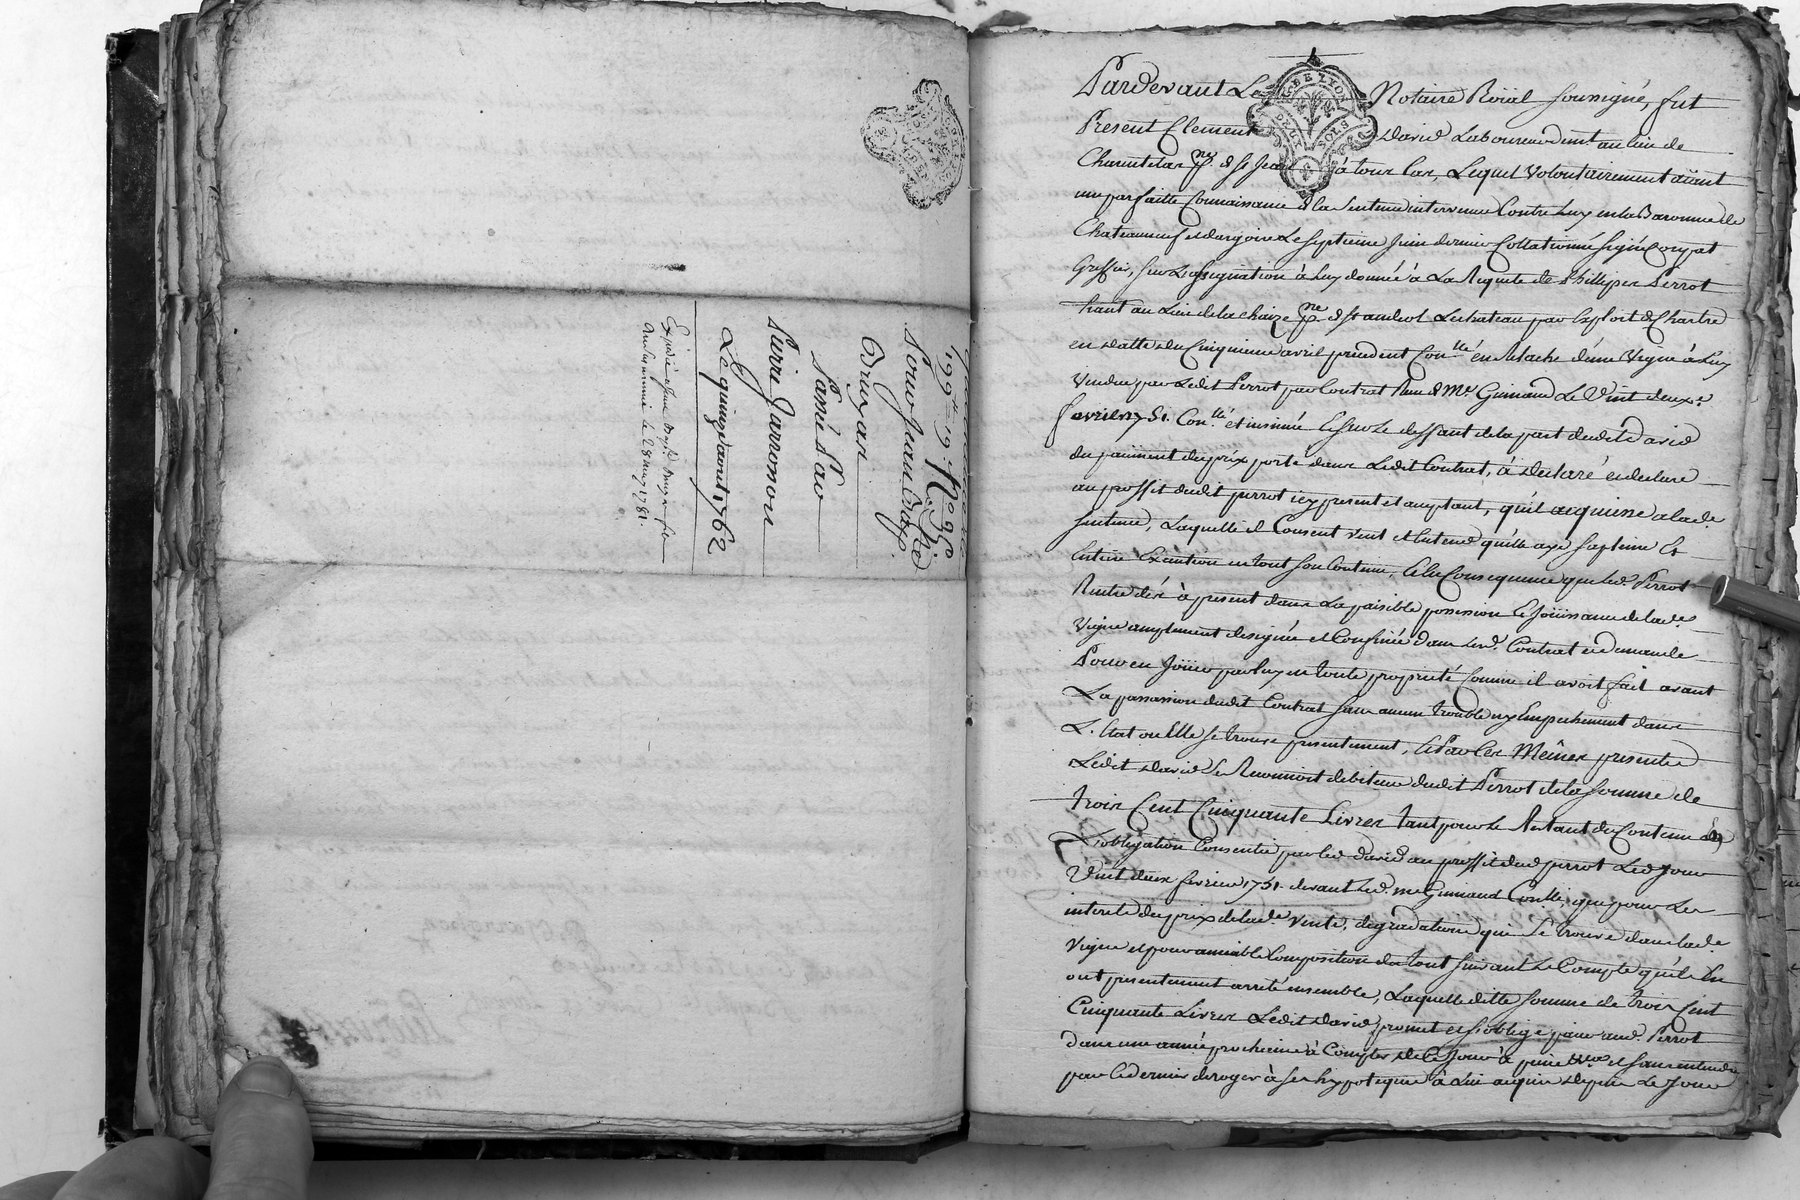 199# 19s
Pour Jean Bapte
Bruyas
Passé Par
Pierre Jarrosson
Le quinze aout 1762
Expédié
le 28 may 1781.
G. DE LYON
DEUX SOLS
Pardevant Le Notaire Roïal soussigné, fut
Present Clement David Laboureur dmt au lieu de
psse de st Jean à tour las, Lequel volontairement aïant
une parfaitte Connaissance de la Sentence intervenue Contre Luy en la Baronnie de
Chateauneuf et dargoire Le septieme Juin dernier Collationné signé
Greffier, sur L'assignation à Luy donnée à La Requete de Phillipes Perrot
hant au Lieu de la chaize psse de st andeol Le chateau par Exploit de Chartre
en datte du Cinquieme avril precedent Conllé en Relache d'une Vigne à Luy
Vendue par Ledit Perrot par Contrat Reçu Me Guinand Le Vint deuxe
fevrier 1751. Conllé et insinué et sur Le deffaut de la part dudit David
du paiiment du prix porté dans Ledit Contrat, à declaré et declare
au proffit dudit perrot icy present et acceptant, qu'il acquiesse a lade
sentence, Laquelle il Consent veut et Entend qu'elle aye sa pleine Et
Entiere Execution en tout son Contenu, et En Consequence que led. Perrot
Rentre dès à present dans La paisible possession et Joüissance de lade
Vigne amplement designée et Confinée dans led. Contrat de vente
Pour en Joüir par luy en toute proprieté Comme il avoit fait avant
La passassion dudit Contrat sans aucun trouble ny Empechement dans
L'Etat ou Elle se trouve presentement, et Par les Mêmes presentes
Ledit David se Reconnoit debiteur dudit Perrot de la somme de
trois Cent Cinquante Livres tant pour Le Restant du Contenu En
L'obligation Consentie par led. David au proffit dud. perrot Led. Jour
Vint deux fevrier 1751. devant Led. me Guinand Conllé, que pour Les
interets du prix de lade vente, degradations qui se trouve dans lade
Vigne et pour amiable Composition du tout suivant Le Compte qu'ils En
ont presentement arreté ensemble, Laquelle ditte somme de trois Cent
Cinquante Livres Ledit David promet et s'oblige paier aud. Perrot
dans une année prochaine à Compter de Ce Jour à peine et sans entendre
par Ce dernier deroger à ses hypoteques à Lui acquis depuis Le Jour